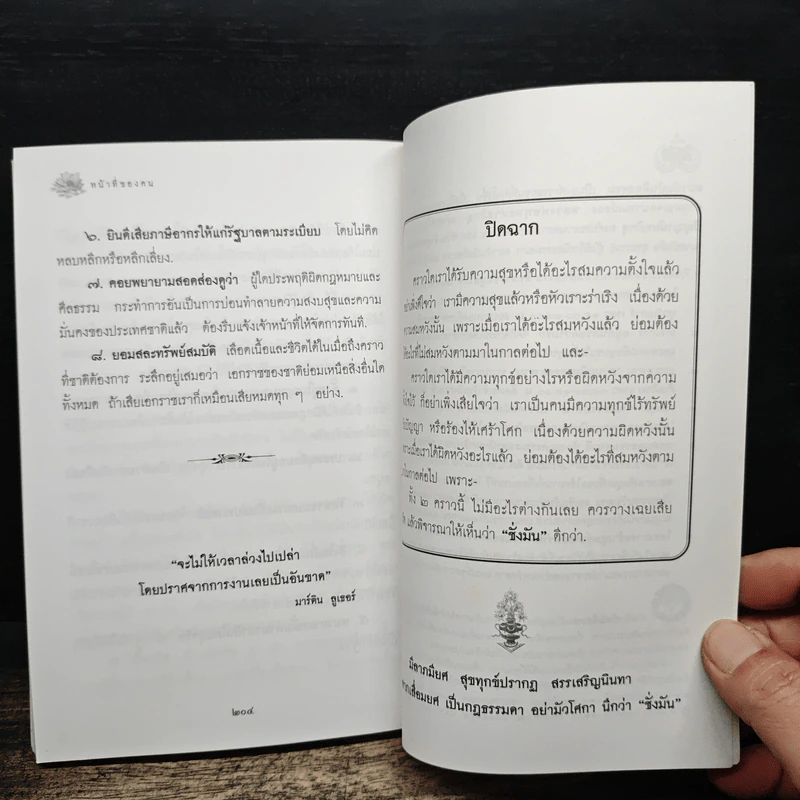 หน้าที่ของคน
๖. ยินดีเสียภาษีอากรให้แก่รัฐบาลตามระเบียบ โดยไม่คิด
หลบหลีกหรือหลีกเลี่ยง.
๗. คอยพยายามสอดส่องดูว่า ผู้ใดประพฤติผิดกฎหมายและ
ศีลธรรม กระทำการอันเป็นการบ่อนทำลายความสงบสุขและความ
มั่นคงของประเทศชาติแล้ว ต้องรีบแจ้งเจ้าหน้าที่ให้จัดการทันที.
๘. ยอมสละทรัพย์สมบัติ เลือดเนื้อและชีวิตได้ในเมื่อถึงคราว
ที่ชาติต้องการ ระลึกอยู่เสมอว่า เอกราชของชาติย่อมเหนือสิ่งอื่นใด
ทั้งหมด ถ้าเสียเอกราชเราก็เหมือนเสียหมดทุก ๆ อย่าง.
“จะไม่ให้เวลาล่วงไปเปล่า
โดยปราศจากการงานเลยเป็นอันขาด”
มาร์ติน ลูเธอร์
๒๐๔
ปิดฉาก
คราวใดเราได้รับความสุขหรือได้อะไรสมความตั้งใจแล้ว
อย่าเพิ่งดีใจว่า เรามีความสุขแล้วหรือหัวเราะร่าเริง เนื่องด้วย
ความสมหวังนั้น เพราะเมื่อเราได้อะไรสมหวังแล้ว ย่อมต้อง
ที่ไม่สมหวังตามมาในกาลต่อไป และ-
คราวใดเราได้มีความทุกข์อย่างไรหรือผิดหวังจากความ
ก็อย่าเพิ่งเสียใจว่า เราเป็นคนมีความทุกข์ไร้ทรัพย์
ปัญญา หรือร้องไห้เศร้าโศก เนื่องด้วยความผิดหวังนั้น
เพราะเมื่อเราได้ผิดหวังอะไรแล้ว ย่อมต้องได้อะไรที่สมหวังตาม
ในกาลต่อไป เพราะ-
ทั้ง ๒ คราวนี้ ไม่มีอะไรต่างกันเลย ควรวางเฉยเสีย
แล้วพิจารณาให้เห็นว่า “ชั่งมัน” ดีกว่า.
มีลาภมียศ สุขทุกข์ปรากฏ สรรเสริญนินทา
เสื่อมยศ เป็นกฎธรรมดา อย่ามัวโศกา นึกว่า “ชั่งมัน”